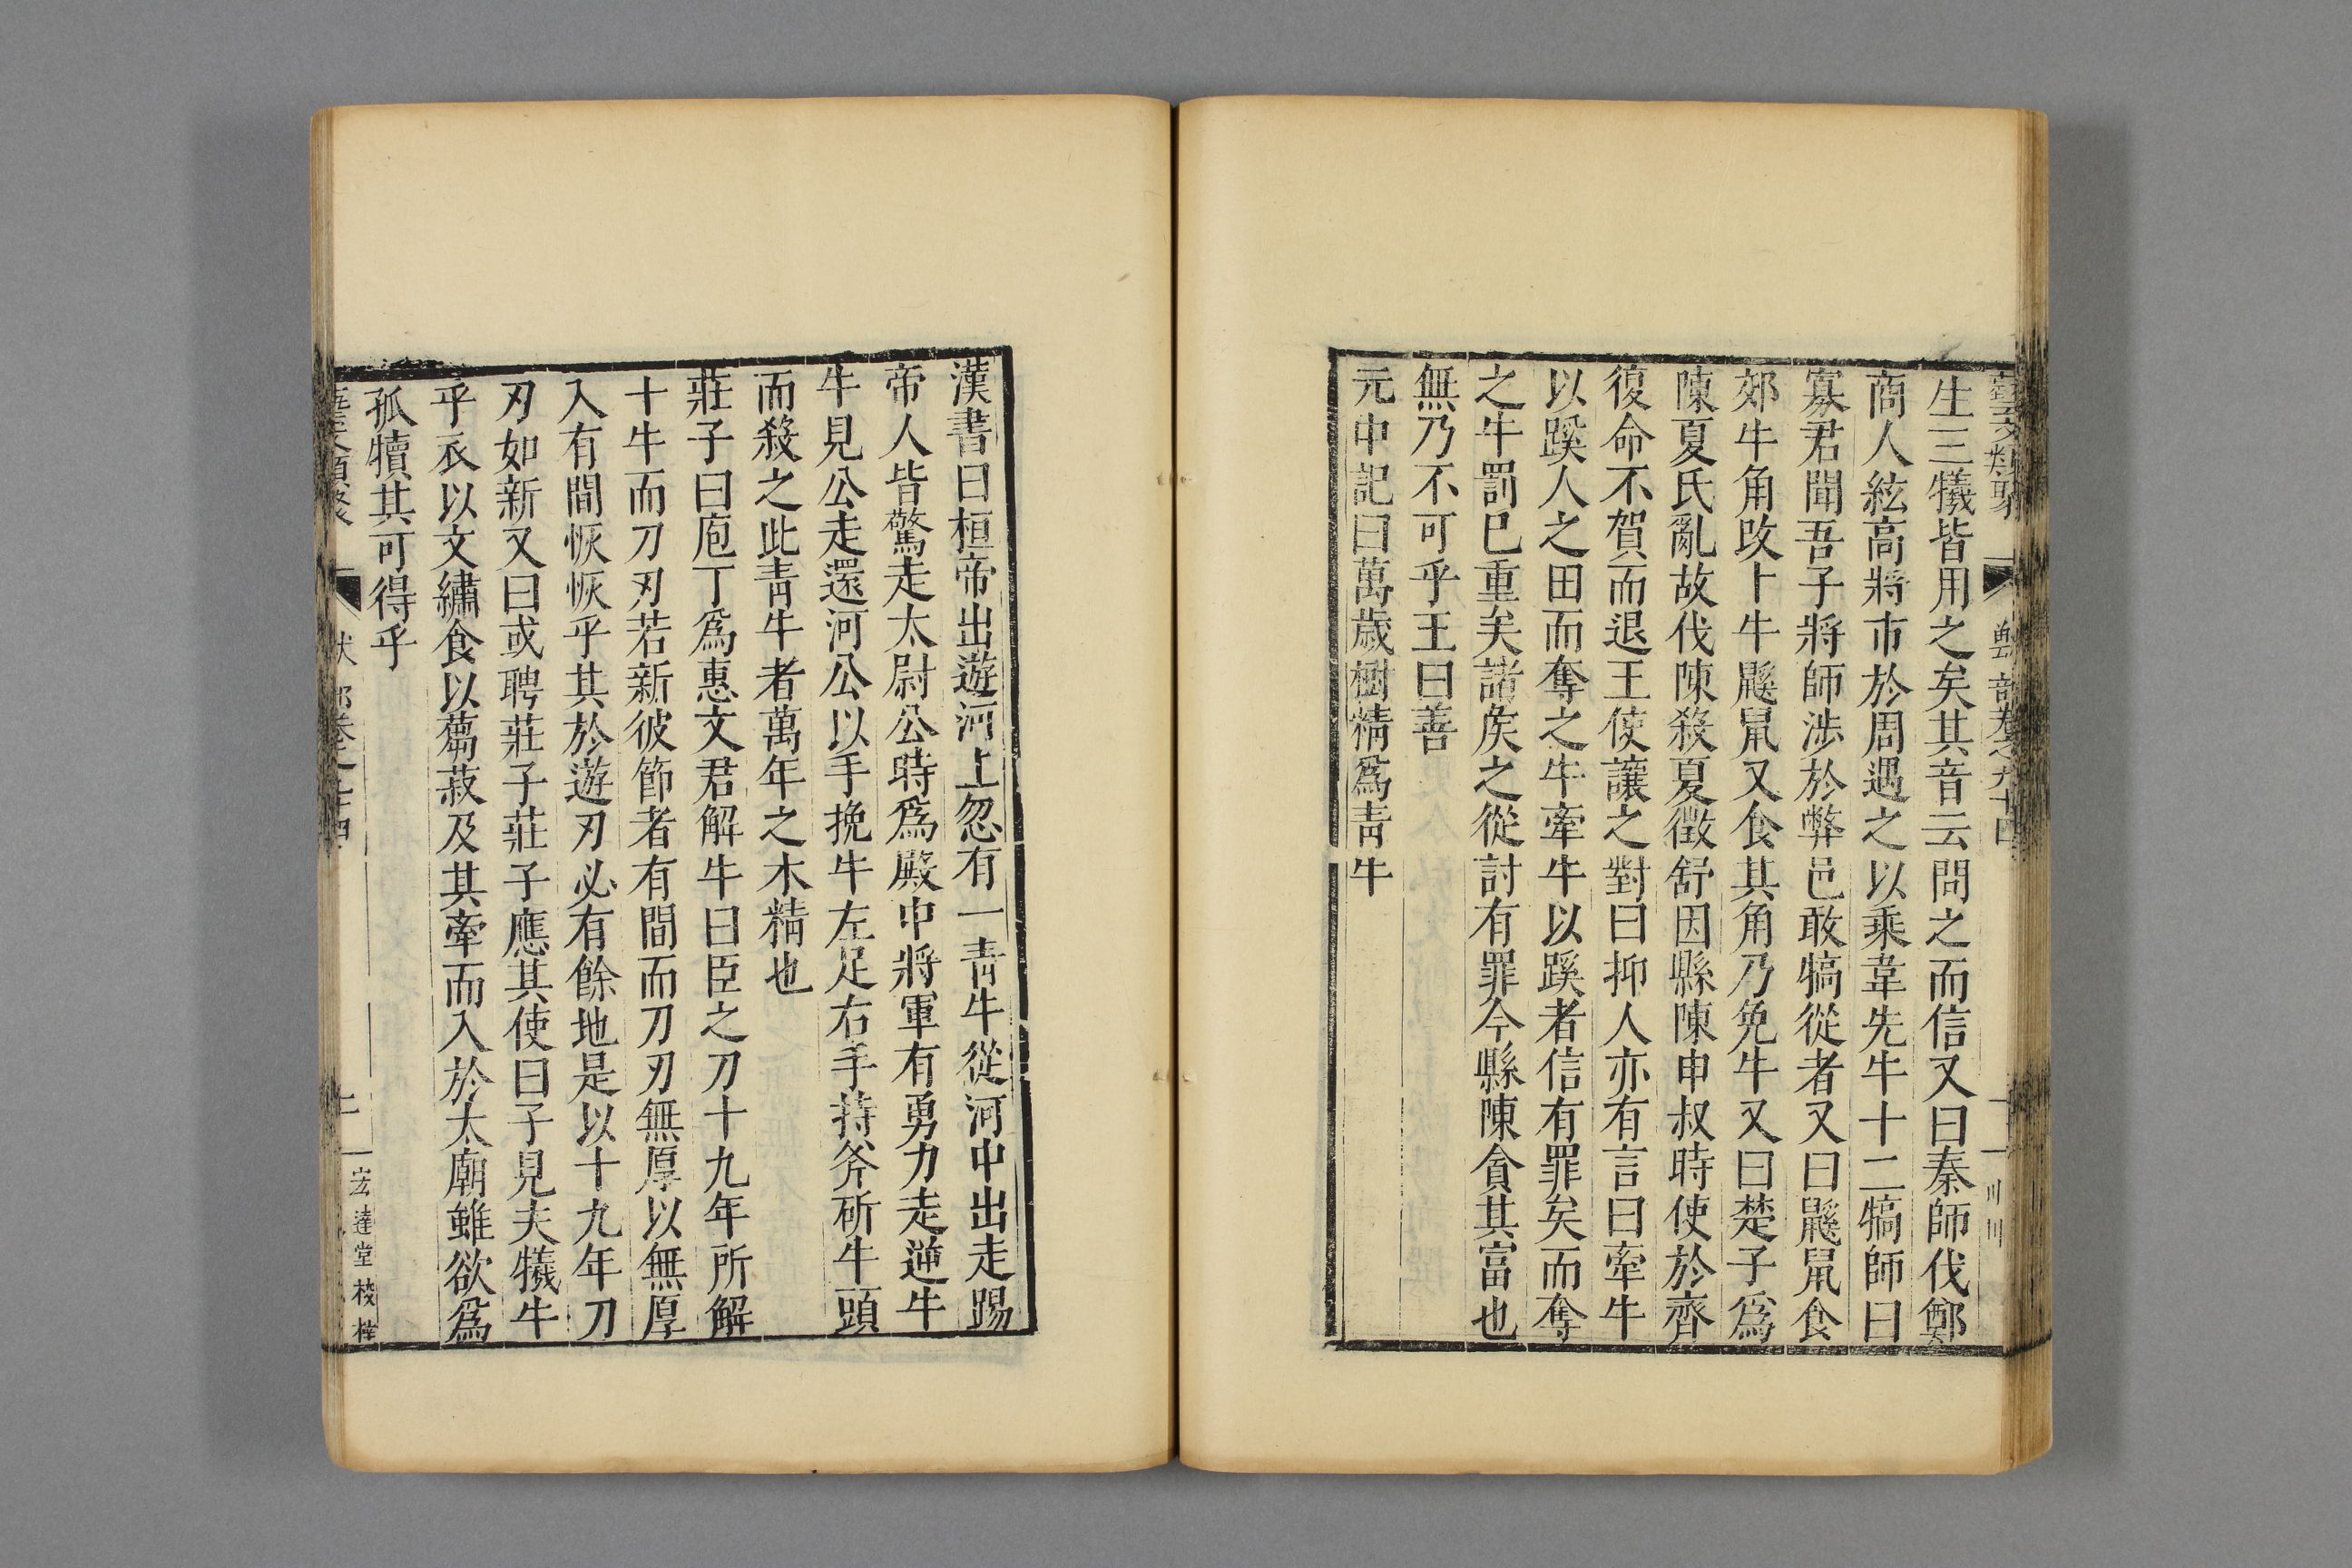 藝文類聚 獸部卷之九十四
生三犧皆用之矣其音云問之而信又曰秦師伐鄭
商人絃高將市於周遇之以乘韋先牛十二犒師曰
寡君聞吾子將師涉於弊邑敢犒從者又曰鼷鼠食
郊牛角改卜牛鼷鼠又食其角乃免牛又曰楚子為
陳夏氏亂故伐陳殺夏徵舒因縣陳申叔時使於齊
復命不賀而退王使讓之對曰抑人亦有言曰牽牛
以蹊人之田而奪之牛牽牛以蹊者信有罪矣而奪
之牛罰已重矣諸矦之從討有罪今縣陳貪其富也
無乃不可乎王曰善
元中記曰萬歲樹精為青牛
漢書曰桓帝出遊河上忽有一青牛從河中出走踢
帝人皆驚走太尉公時為殿中將軍有勇力走逆牛
牛見公走還河公以手挽牛左足右手持斧斫牛頭
而殺之此青牛者萬年之木精也
莊子曰庖丁為惠文君解牛曰臣之刀十九年所解
十牛而刀刃若新彼節者有間而刀刃無厚以無厚
入有間恢恢乎其於遊刃必有餘地是以十九年刀
刃如新又曰或聘莊子莊子應其使曰子見夫犧牛
乎衣以文繡食以蒭菽及其牽而入於太廟雖欲為
孤犢其可得乎
宏達堂校